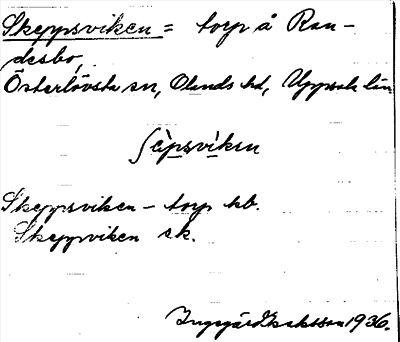 Skeppsviken = torp å Ran-
desbo,
Österlövsta sn, Olands hd, Uppsala län
ʃèpsvìken
Skeppsviken – torp kb.
Skeppviken sk.
Ingegärd Isaksson 1936.